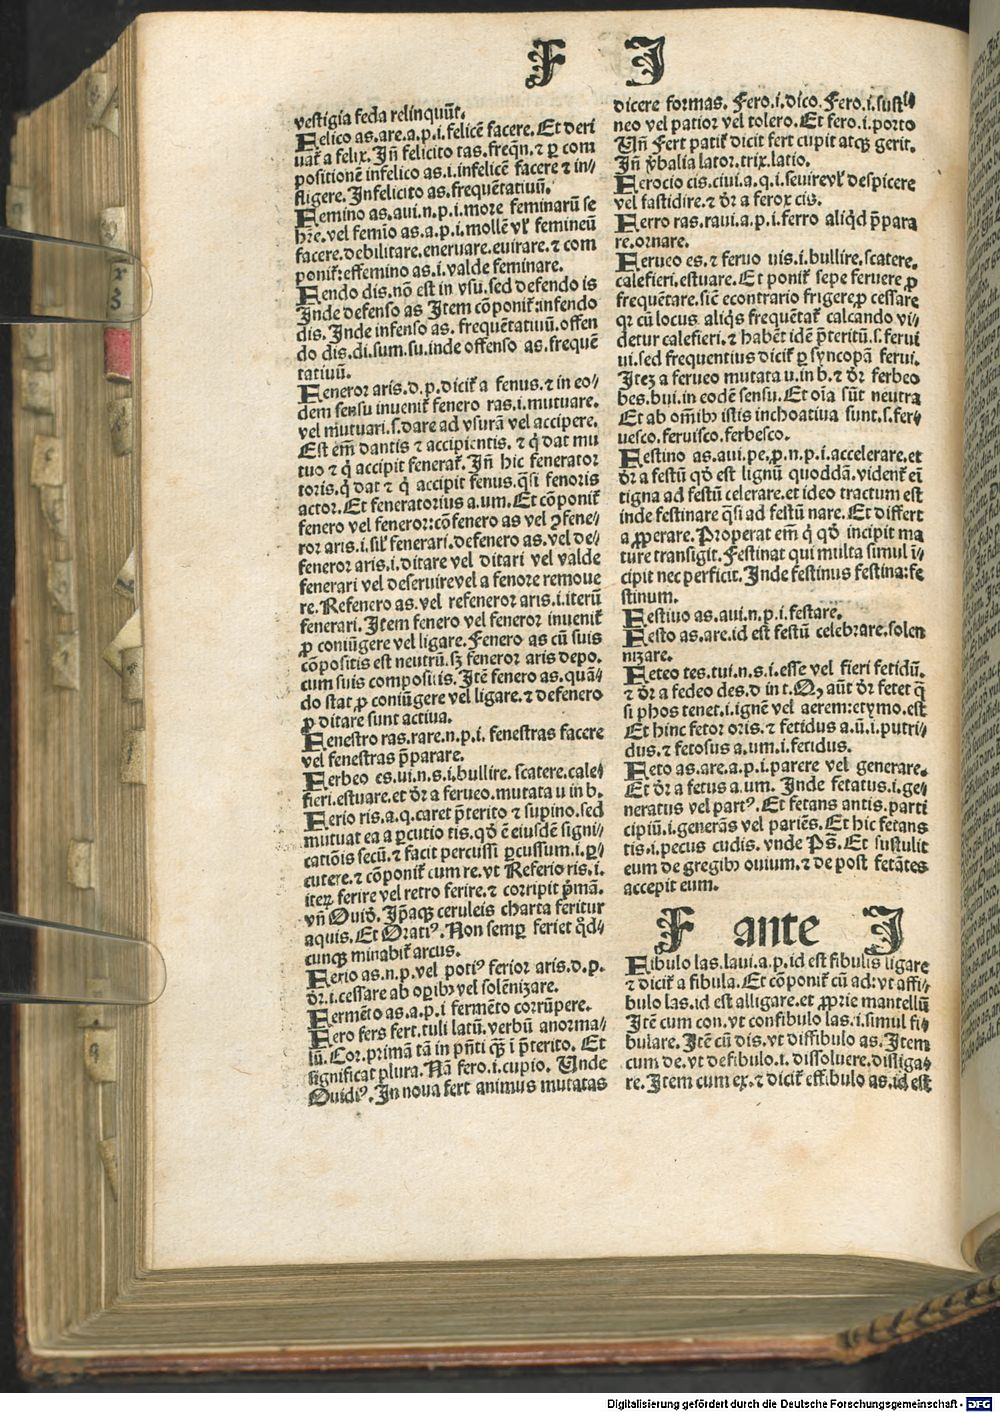 F J
vestigia feda relinquūt.
Felico as.are.a.p.i.felicē facere. Et deri
uat᷑ a felix. Jñ felicito tas.freqñ.⁊ ꝑ com
positionē infelico as.i.infelicē facere ⁊ in⸗
fligere. Infelicito as.frequētatiuū.
Femino as.aui.n.p.i.more feminarū se
hr̄e.vel femīo as.a.p.i.mollē vl᷑ femineū
facere.debilitare.eneruare.euirare.⁊ com
ponit᷑:effemino as.i.valde feminare.
Fendo dis.nō est in vsu.sed defendo is
Inde defenso as Item cōponit᷑:infendo
dis. Inde infenso as. frequētatiuū.offen
do dis.di.sum.su.inde offenso as.frequē
tatiuū.
Feneror aris.d.p.dicit᷑ a fenus.⁊ in eo⸗
dem sensu inuenit᷑ fenero ras.i.mutuare.
vel mutuari.s.dare ad vsurā vel accipere.
Est em̄ dantis ⁊ accipientis. ⁊ q̇ dat mu
tuo ⁊ q̇ accipit fenerat᷑. Jñ hic fenerator
toris.q̇ dat ⁊ q̇ accipit fenus.q̄si fenoris
actor. Et feneratorius a.um. Et cōponit᷑
fenero vel feneror:cōfenero as vel ꝯfene⸗
ror aris.i.sil᷑ fenerari.defenero as.vel de⸗
feneror aris.i.ditare vel ditari vel valde
fenerari vel deseruire vel a fenore remoue
re. Refenero as.vel refeneror aris.i.iterū
fenerari. Item fenero vel feneror inuenit᷑
ꝓ coniūgere vel ligare. Fenero as cū suis
cōpositis est neutrū.sꝫ feneror aris depo.
cum suis compositis. Itē fenero as.quā⸗
do stat ꝓ coniūgere vel ligare.⁊ defenero
ꝓ ditare sunt actiua.
Fenestro ras.rare.n.p.i. fenestras facere
vel fenestras p̄parare.
Ferbeo es.ui.n.s.i.bullire.scatere.cale⸗
fieri.estuare.et dr̄ a ferueo.mutata u in b.
Ferio ris.a.q.caret p̄terito ⁊ supino.sed
mutuat ea a ꝑcutio tis.qd̄ ē eiusdē signi⸗
catiōis secū.⁊ facit percussi ꝑcussum.i.ꝑ⸗
cutere.⁊ cōponit᷑ cum re.vt Referio ris.i.
iteꝝ ferire vel retro ferire.⁊ corripit p̄mā.
vñ Ouid̄. Jp̄aqꝫ ceruleis charta feritur
aquis. Et Oratiꝰ. Non semꝑ feriet q̄d⸗
cunqꝫ minabit᷑ arcus.
Ferio as.n.p.vel potiꝰ ferior aris.d.p.
dr̄.i.cessare ab oꝑibꝫ vel solēnizare.
Fermēto as.a.p.i fermēto corrūpere.
Fero fers fert.tuli latū.verbū anorma⸗
lū. Cor.primā tā in pñti qꝫ ī p̄terito. Et
significat plura. Nā fero.i.cupio. Unde
Ouidiꝰ. In noua fert animus mutatas
dicere formas. Fero.i.dico. Fero.i.susti⸗
neo vel patior vel tolero. Et fero.i.porto
Uñ Fert patit᷑ dicit fert cupit atqꝫ gerit.
Jñ v̄balia lator.trix.latio.
Ferocio cis.ciui.a.q.i.seuire vl᷑ despicere
vel fastidire.⁊ dr̄ a ferox cis.
Ferro ras.raui.a.p.i ferro aliqd p̄para
re.ornare.
Ferueo es.⁊ feruo uis.i.bullire.scatere.
calefieri.estuare. Et ponit᷑ sepe feruere ꝓ
frequētare.sicē econtrario frigere ꝓ cessare
qꝛ cū locus aliqs frequētat᷑ calcando vi⸗
detur calefieri.⁊ habēt idē p̄teritū.s.ferui
ui.sed frequentius dicit᷑ ꝑ syncopā ferui.
Iteꝫ a ferueo mutata u.in b.⁊ dr̄ ferbeo
bes.bui.in eodē sensu. Et oīa sūt neutra
Et ab om̄ibꝫ istis inchoatiua sunt.s.fer⸗
uesco.feruisco.ferbesco.
Festino as.aui.pe.ꝓ.n.p.i.accelerare.et
dr̄ a festū qd̄ est lignū quoddā.vident᷑ ei
tigna ad festū celerare.et ideo tractum est
inde festinare q̄si ad festū nare. Et differt
a ꝓperare. Properat em̄ q̇ qd̄ incipit ma
ture transigit. Festinat qui multa simul ī⸗
cipit nec perficit. Inde festinus festina:fe
stinum.
Festiuo as.aui.n.p.i.festare.
Festo as.are.id est festū celebrare.solen
nizare.
Feteo tes.tui.n.s.i.esse vel fieri fetidū.
⁊ dr̄ a fedeo des.d in t. Qꝫ aūt dr̄ fetet q̄
si phos tenet.i.ignē vel aerem:etymo.est
Et hinc fetor oris.⁊ fetidus a.ū.i.putri⸗
dus.⁊ fetosus a.um.i.fetidus.
Feto as.are.a.p.i.parere vel generare.
Et dr̄ a fetus a.um. Inde fetatus.i.ge⸗
neratus vel partꝰ. Et fetans antis.parti
cipiū.i.generās vel pariēs. Et hic fetans
tis.i.pecus cudis. vnde Ps̄. Et sustulit
eum de gregibꝫ ouium.⁊ de post fetātes
accepit eum.
F ante J
Fibulo las.laui.a.p.id est fibulis ligare
⁊ dicit᷑ a fibula. Et cōponit᷑ cū ad:vt affi⸗
bulo las.id est alligare.et ꝓprie mantellū
Itē cum con.vt confibulo las.i.simul fi⸗
bulare. Itē cū dis.vt diffibulo as. Item
cum de.vt defibulo.i.dissoluere.disliga⸗
re. Item cum ex.⁊ dicit᷑ effibulo as.id est
Digitalisierung gefördert durch die Deutsche Forschungsgemeinschaft - DFG